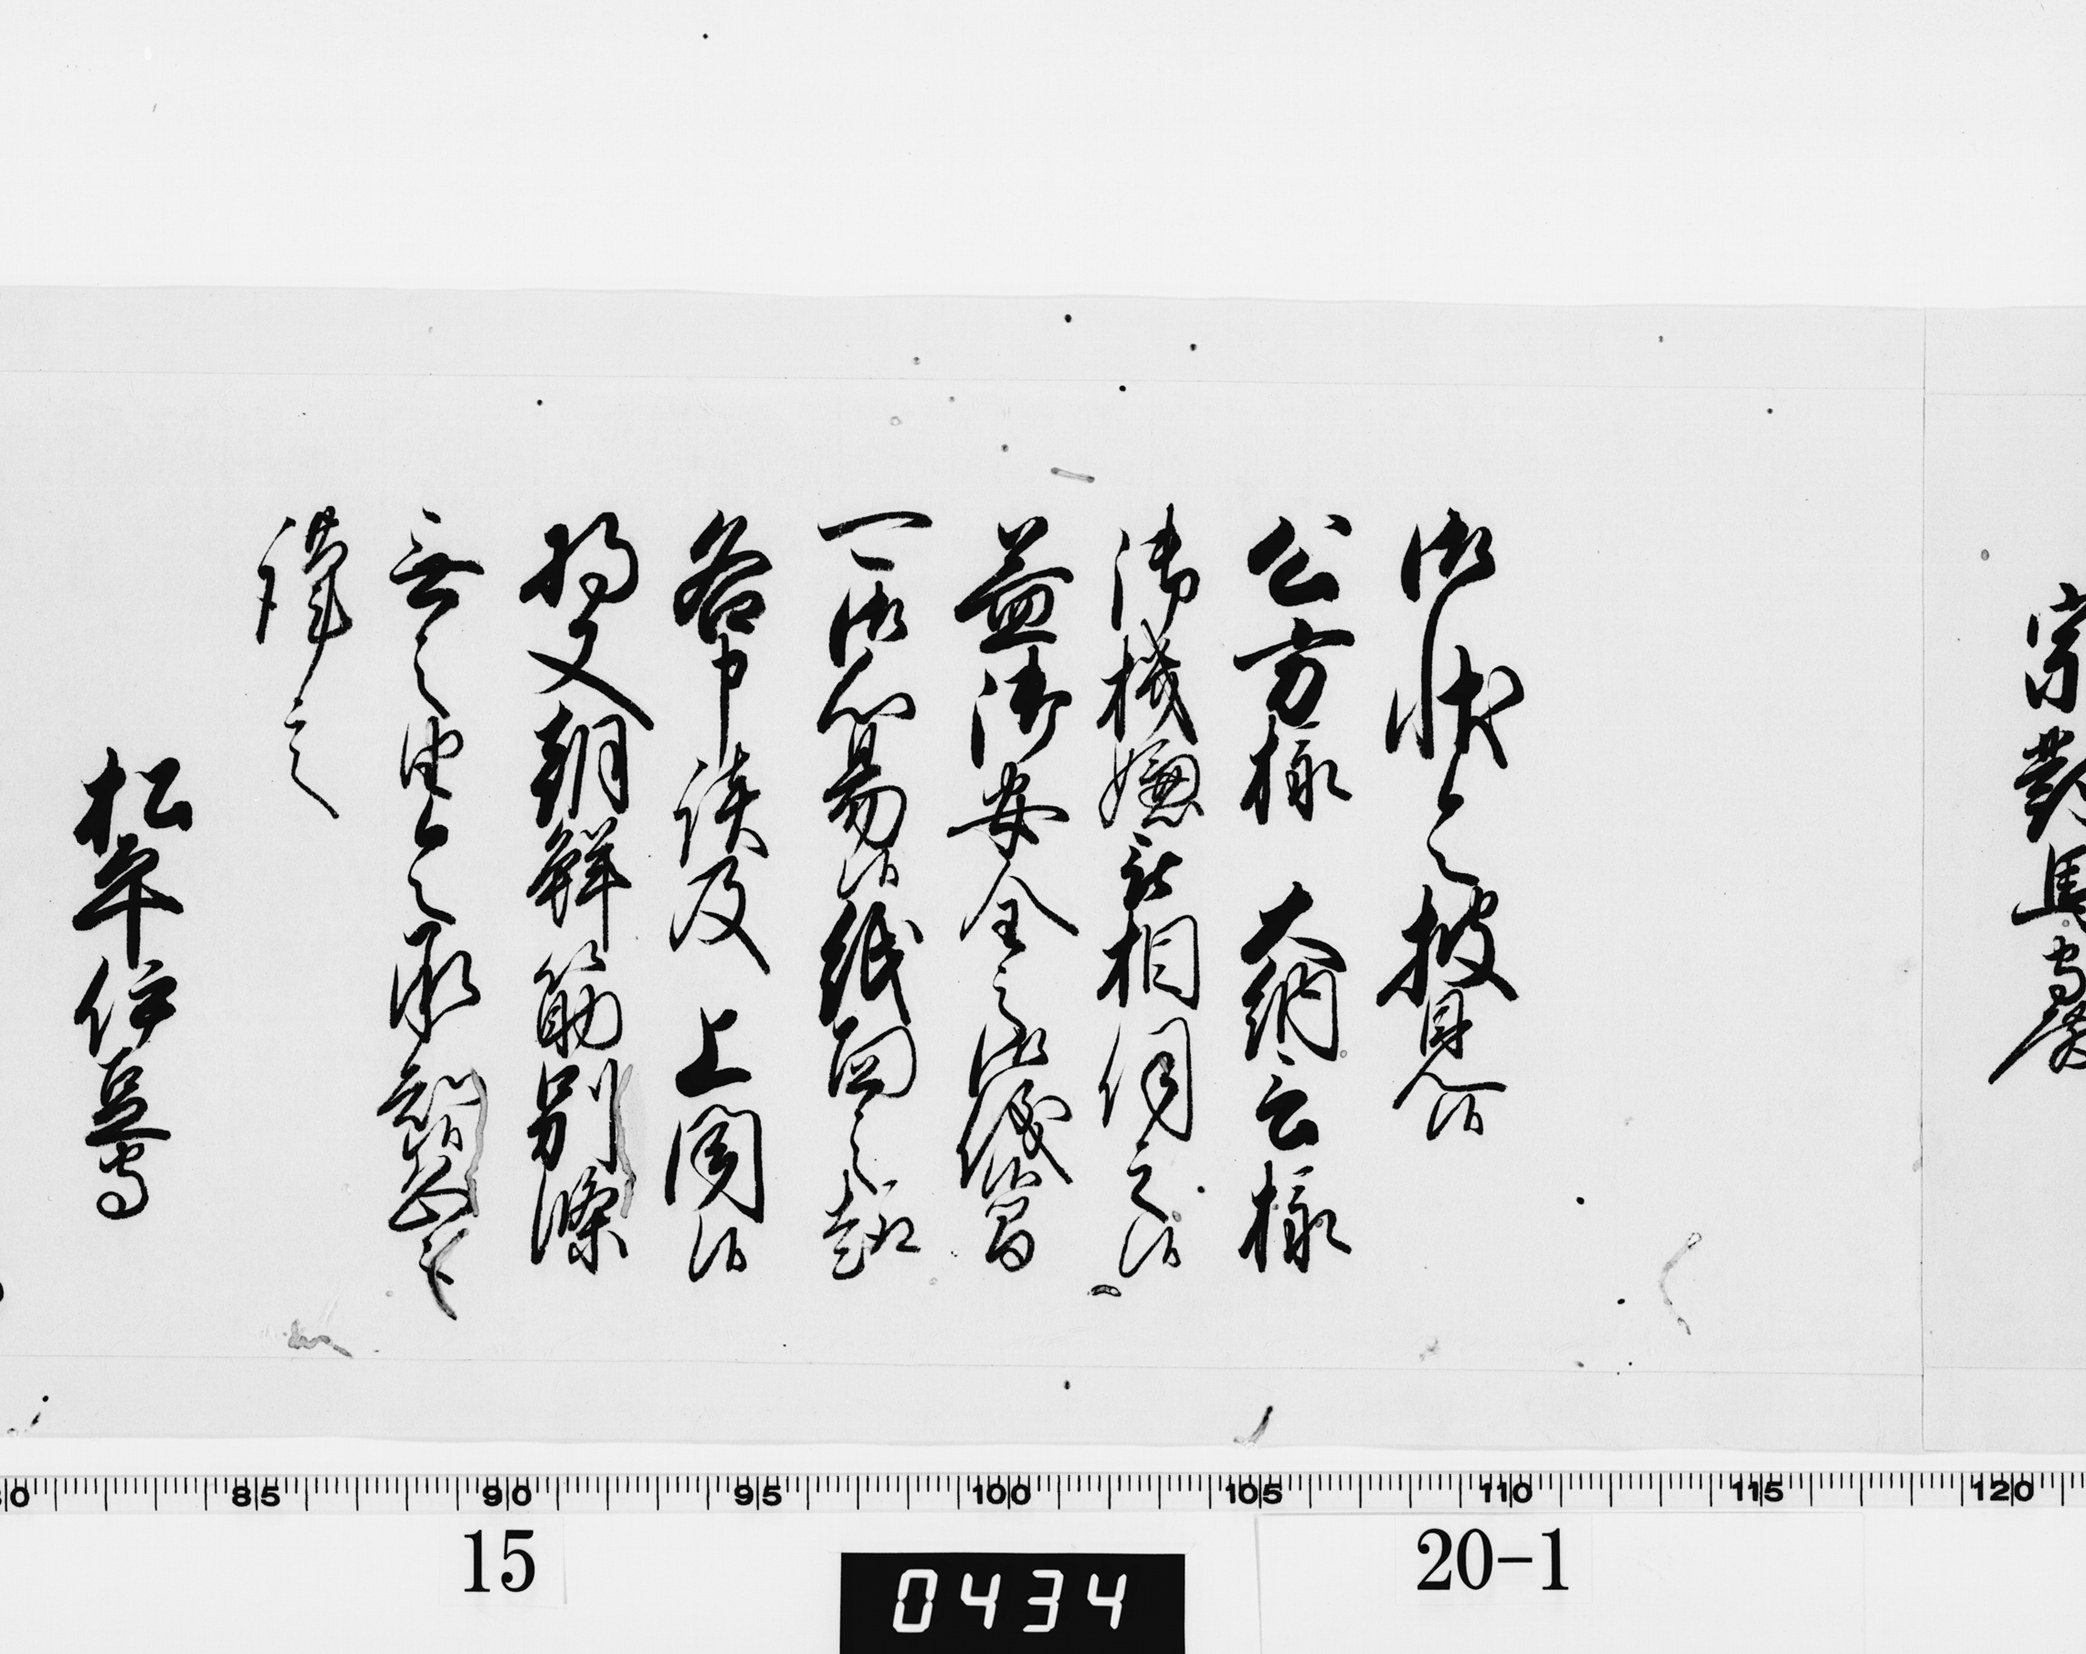 宗對馬守殿
御状令披見候
公方様　大納言様
御機嫌被相伺之候
益御安全之御儀候間
可御心易候紙面之趣
各申談及　上聞候
将又朝鮮筋別條
無之由令承知候恐々
謹言
松平伊豆守
80 85 90 95 100 105 110 115 120
15
0434
20-1